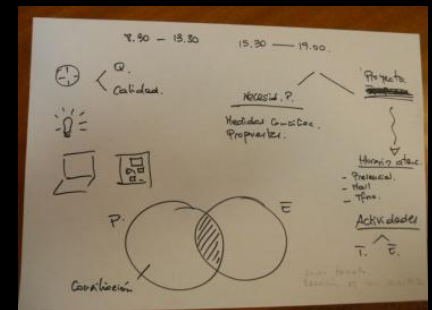 8.30 — 13.30
15.30 — 19.00.
Q.
Calidad.
Necesid. P.
Medidas
Propuestas.
Proyecto
Horario atenc.
- Presencial.
- Mail
- Tfno.
Actividades
T. E.
P.
E
Conciliación